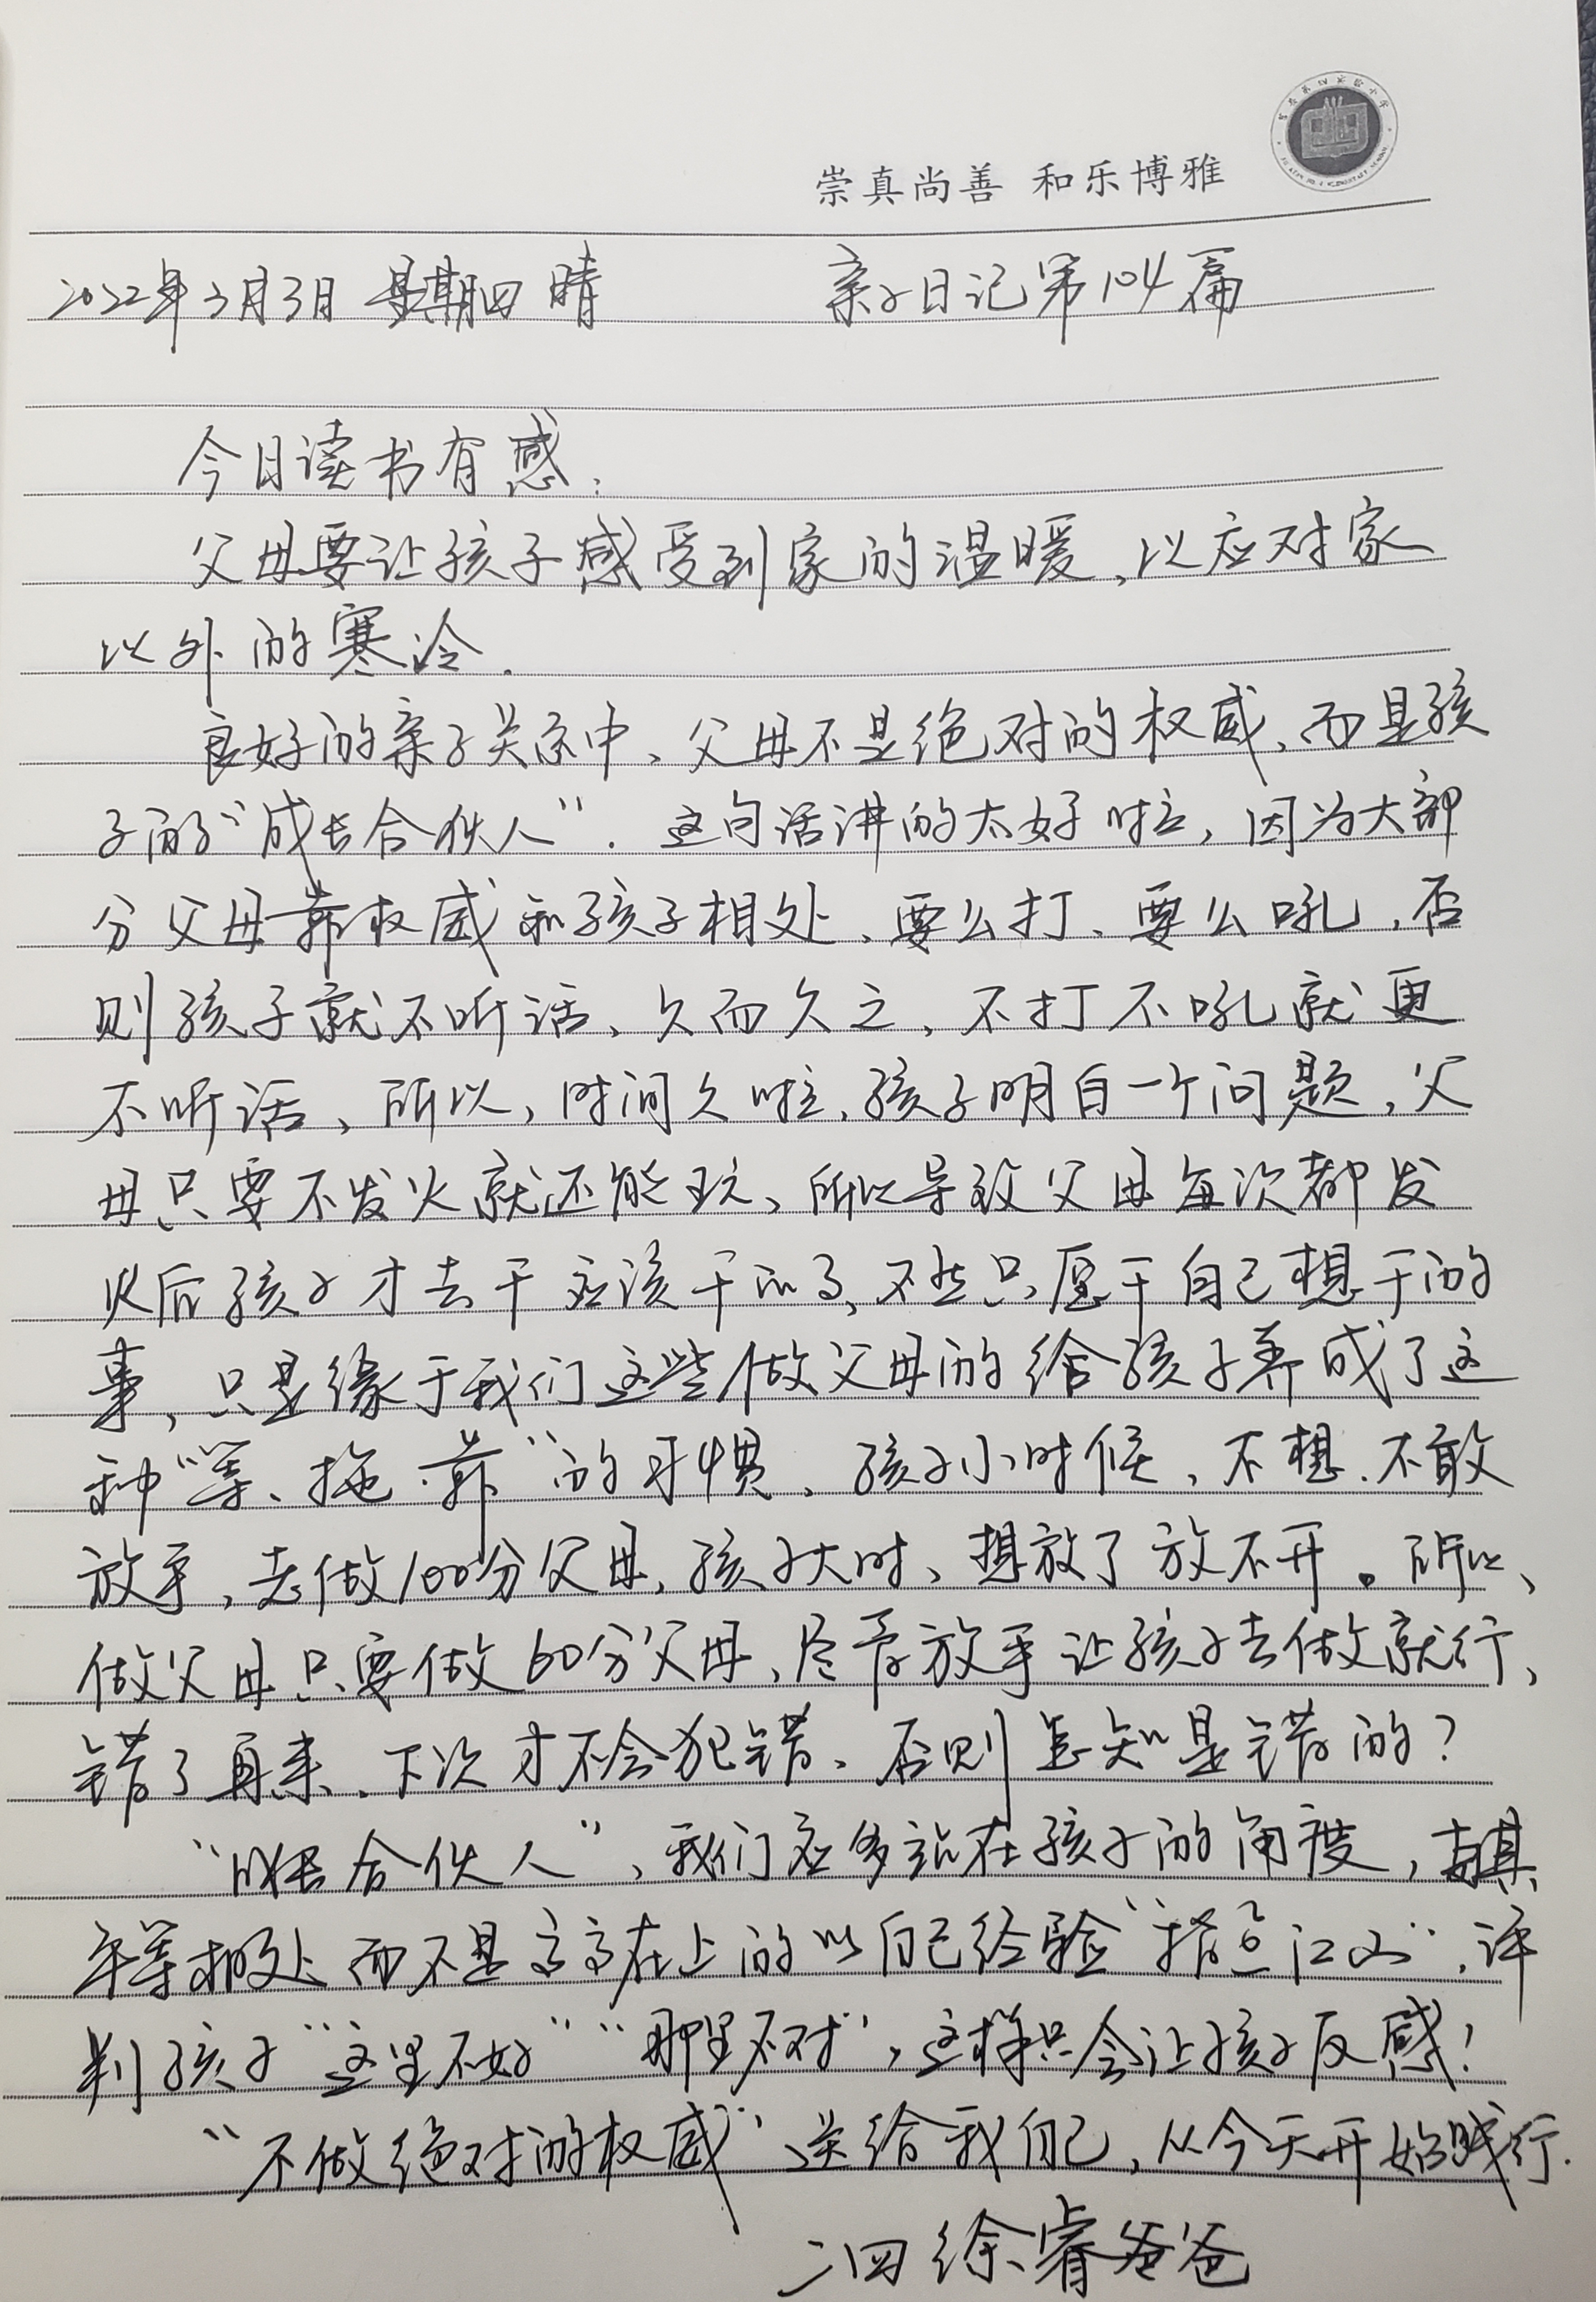 崇真尚善 和乐博雅
2022年3月3日 星期四 晴 亲子日记第104篇
今日读书有感:
父母要让孩子感受到家的温暖,以应对家
以外的寒冷.
良好的亲子关系中、父母不是绝对的权威、而是孩
子的“成长合伙人”. 这句话讲的太好啦,因为大部
分父母靠权威和孩子相处、要么打、要么吼,否
则孩子就不听话、久而久之、不打不吼就更
不听话、所以,时间久啦,孩子明白一个问题,父
母只要不发火就还能玩、所以导致父母每次都发
火后孩子才去干应该干的了,不然只愿干自己想干的
事,只是缘于我们这些做父母的给孩子养成了这
种“等、拖、靠”的习惯、孩子小时候、不想、不敢
放手,去做100分父母,孩子大时、想放了放不开。所以、
做父母只要做60分父母、尽管放手让孩子去做就行、
错了再来、下次才不会犯错、否则怎知是错的?
“成长合伙人”,我们应多站在孩子的角度,与其
平等相处而不是高高在上的以自己经验“指点江山”,评
判孩子“这里不好”“那里不对”,这样只会让孩子反感!
“不做绝对的权威”送给我自己,从今天开始践行.
二四 徐睿爸爸